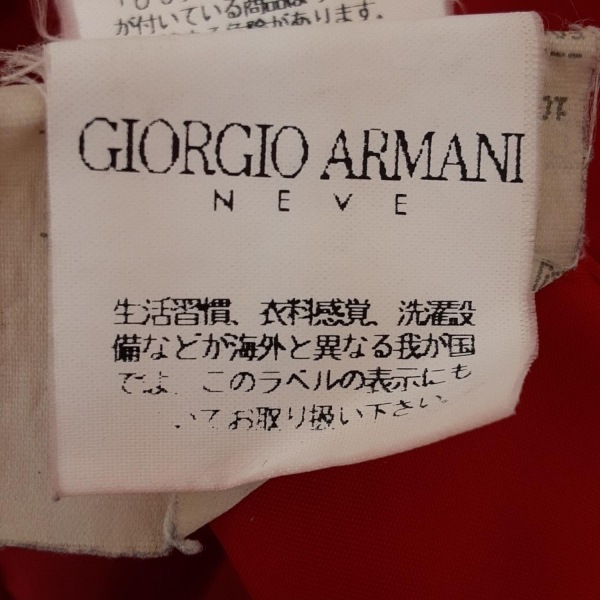 が付いている商品は
危険があります。
GIORGIO ARMANI
NEVE
生活習慣、衣料感覚、洗濯設
備などが海外と異なる我が国
では、このラベルの表示にも
いてお取り扱い下さい。